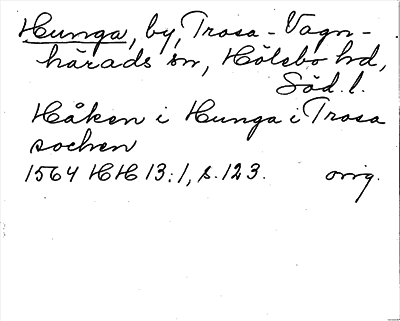 Hunga, by, Trosa-Vagn-
härads sn, Hölebo hd,
Söd. l.
Håken i Hunga i Trosa
sochen
1564 HH 13:1, s. 123. orig.